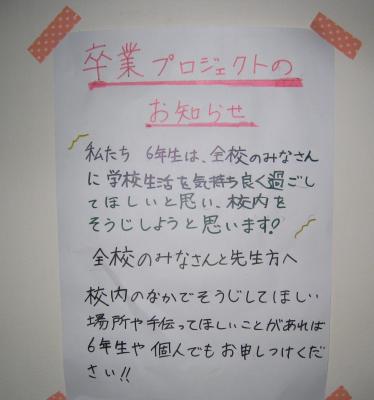 卒業プロジェクトの
お知らせ
私たち 6年生は、全校のみなさん
に学校生活を気持ち良く過ごし
てほしいと思い、校内を
そうじしようと思います!
全校のみなさんと先生方へ
校内のなかでそうじしてほしい
場所や手伝ってほしいことがあれば
6年生や個人でもお申しつけくだ
さい!!